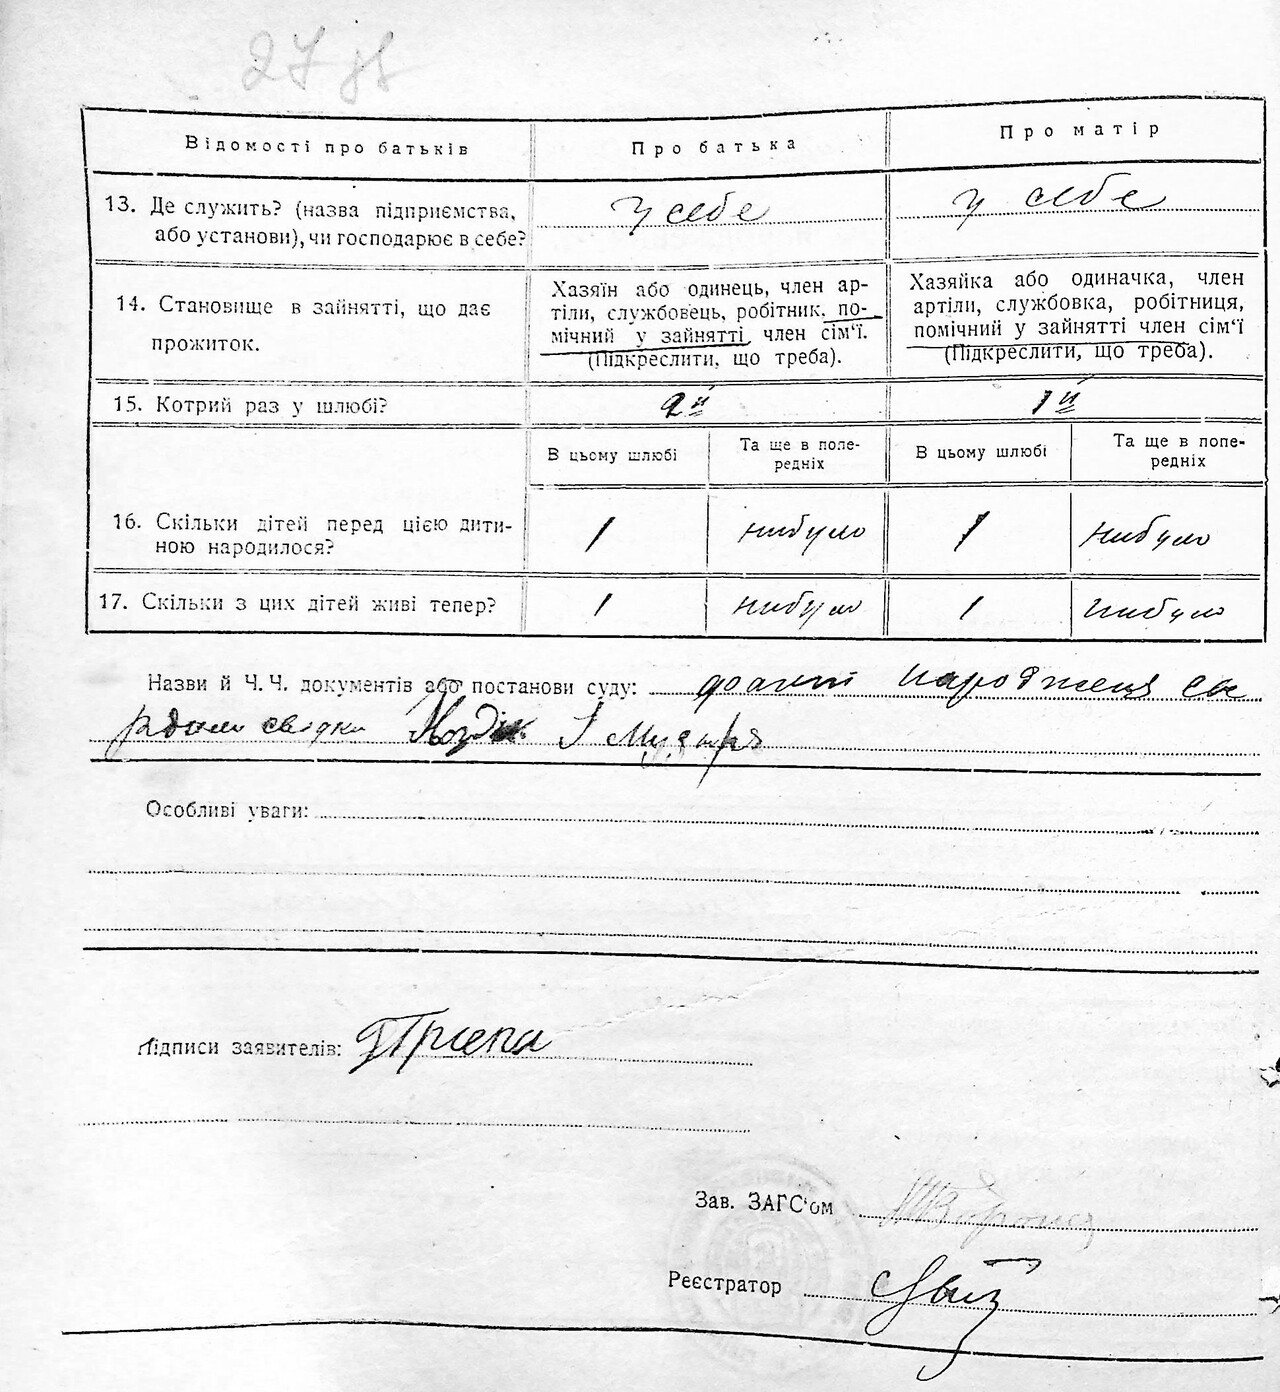 27
Відомості про батьків
Про батька
Про матір
13. Де служить? (назва підприємства, або установи), чи господарює в себе?
у себе
у себе
14. Становище в зайнятті, що дає прожиток.
Хазяїн або одинець, член ар-
тілі, службовець, робітник, по-
мічний у зайнятті член сім'ї.
(Підкреслити, що треба).
Хазяйка або одиначка, член
артілі, службовка, робітниця,
помічний у зайнятті член сім'ї
(Підкреслити, що треба).
15. Котрий раз у шлюбі?
2й
1й
В цьому шлюбі
Та ще в попе-
редніх
В цьому шлюбі
Та ще в попе-
редніх
16. Скільки дітей перед цією дити-
ною народилося?
1
нибуло
1
нибуло
17. Скільки з цих дітей живі тепер?
1
нибуло
1
нибуло
Назви й Ч.Ч. документів або постанови суду: факт
свідки І
Особливі уваги:
Підписи заявителів:
Зав. ЗАГС'ом
Реєстратор